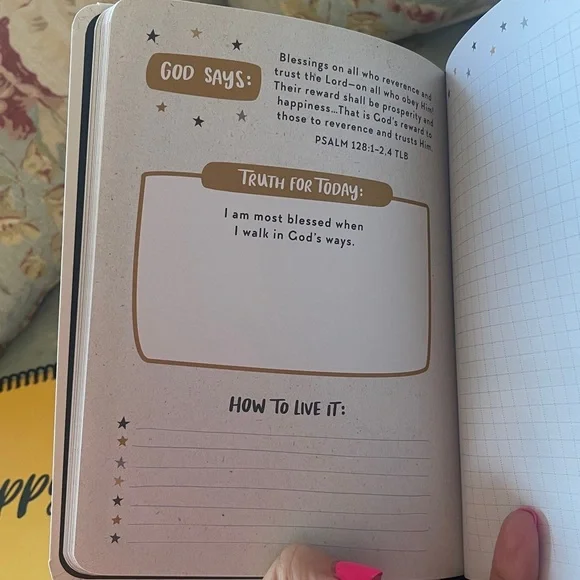 GOD SAYS:
Blessings on all who reverence and
trust the Lord—on all who obey Him!
Their reward shall be prosperity and
happiness...That is God's reward to
those to reverence and trusts Him.
PSALM 128:1-2,4 TLB
TRUTH FOR TODAY:
I am most blessed when
I walk in God's ways.
HOW TO LIVE IT: